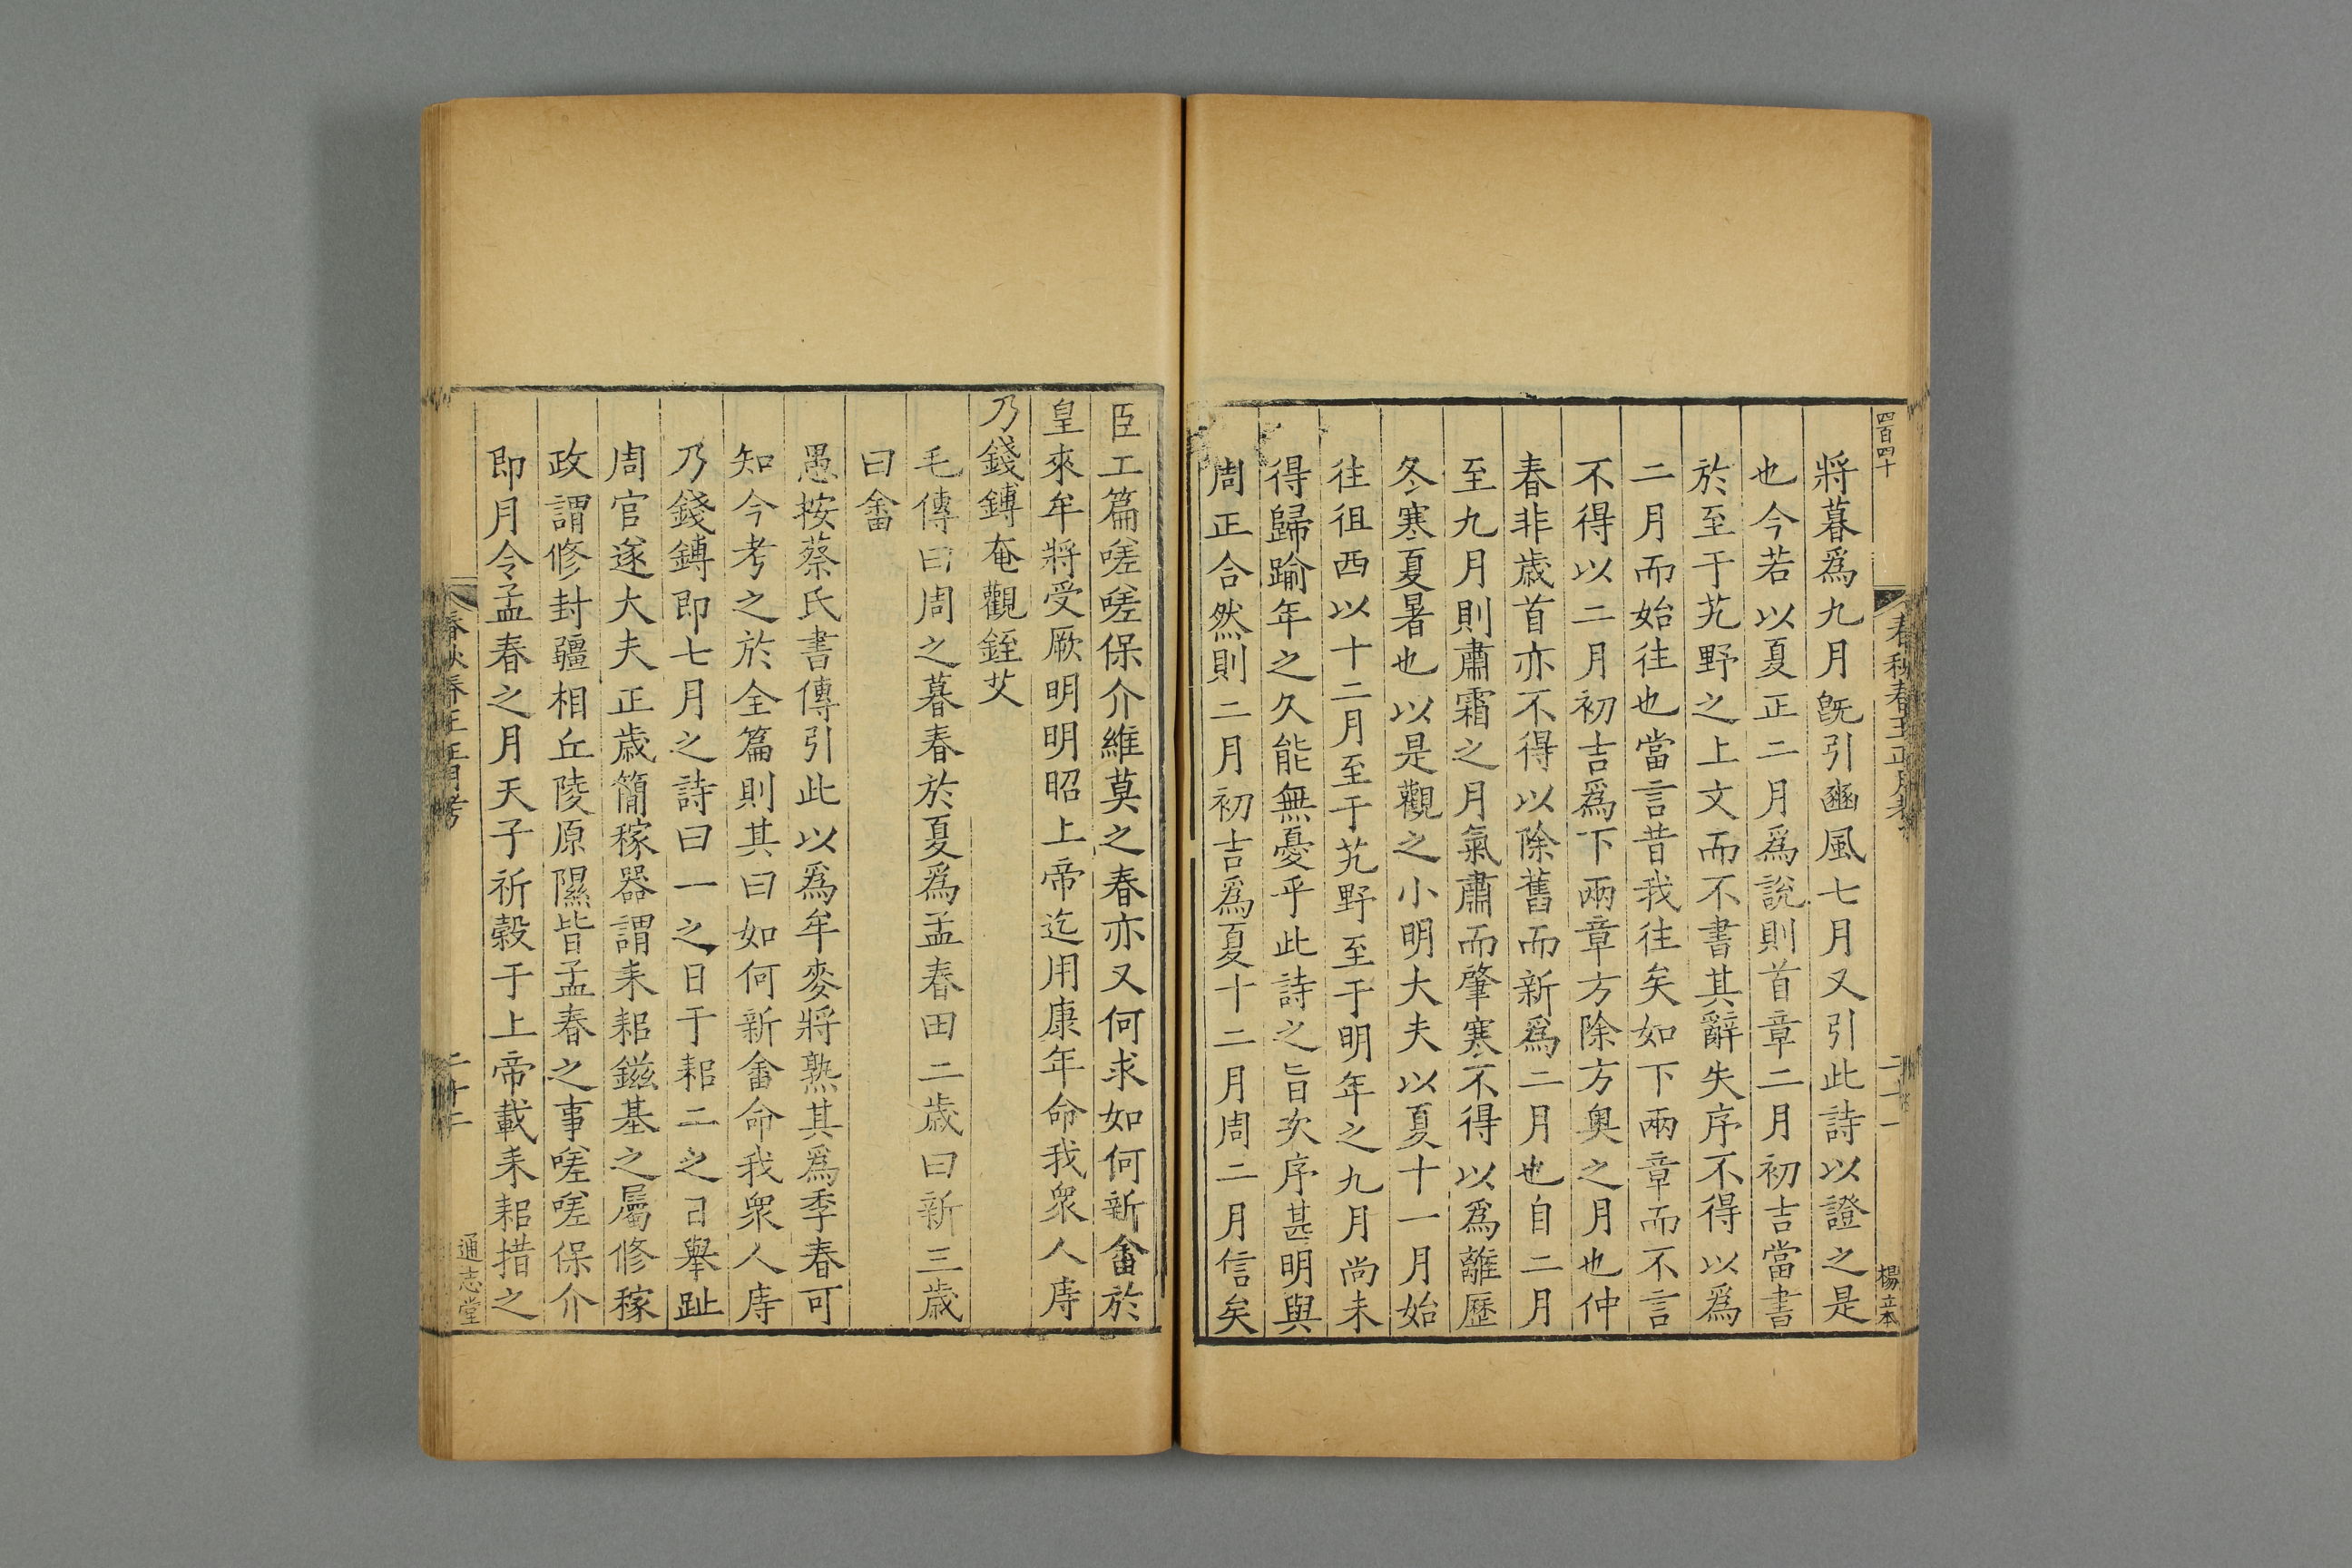 四百四十
春秋春王正月考
二十一
楊立本
將暮爲九月旣引豳風七月又引此詩以證之是
也今若以夏正二月爲說則首章二月初吉當書
於至于艽野之上文而不書其辭失序不得以爲
二月而始往也當言昔我往矣如下兩章而不言
不得以二月初吉爲下兩章方除方奧之月也仲
春非歲首亦不得以除舊而新爲二月也自二月
至九月則肅霜之月氣肅而肇寒不得以爲離歷
冬寒夏暑也以是觀之小明大夫以夏十一月始
往徂西以十二月至于艽野至于明年之九月尚未
得歸踰年之久能無憂乎此詩之旨次序甚明與
周正合然則二月初吉爲夏十二月周二月信矣
臣工篇嗟嗟保介維莫之春亦又何求如何新畬於
皇來牟將受厥明明昭上帝迄用康年命我衆人庤
乃錢鎛奄觀銍艾
毛傳曰周之暮春於夏爲孟春田二歲曰新三歲
曰畬
愚按蔡氏書傳引此以爲牟麥將熟其爲季春可
知今考之於全篇則其曰如何新畬命我衆人庤
乃錢鎛即七月之詩曰一之日于耜二之日舉趾
周官遂大夫正歲簡稼器謂耒耜鎡基之屬修稼
政謂修封疆相丘陵原隰皆孟春之事嗟嗟保介
即月令孟春之月天子祈穀于上帝載耒耜措之
春秋春王正月考
二十二
通志堂